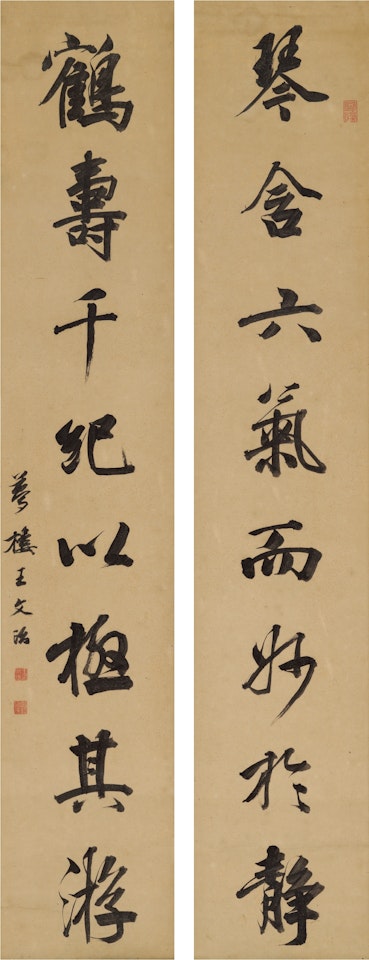 琴含六氣而妙於靜
鶴壽千紀以極其游
夢樓王文治